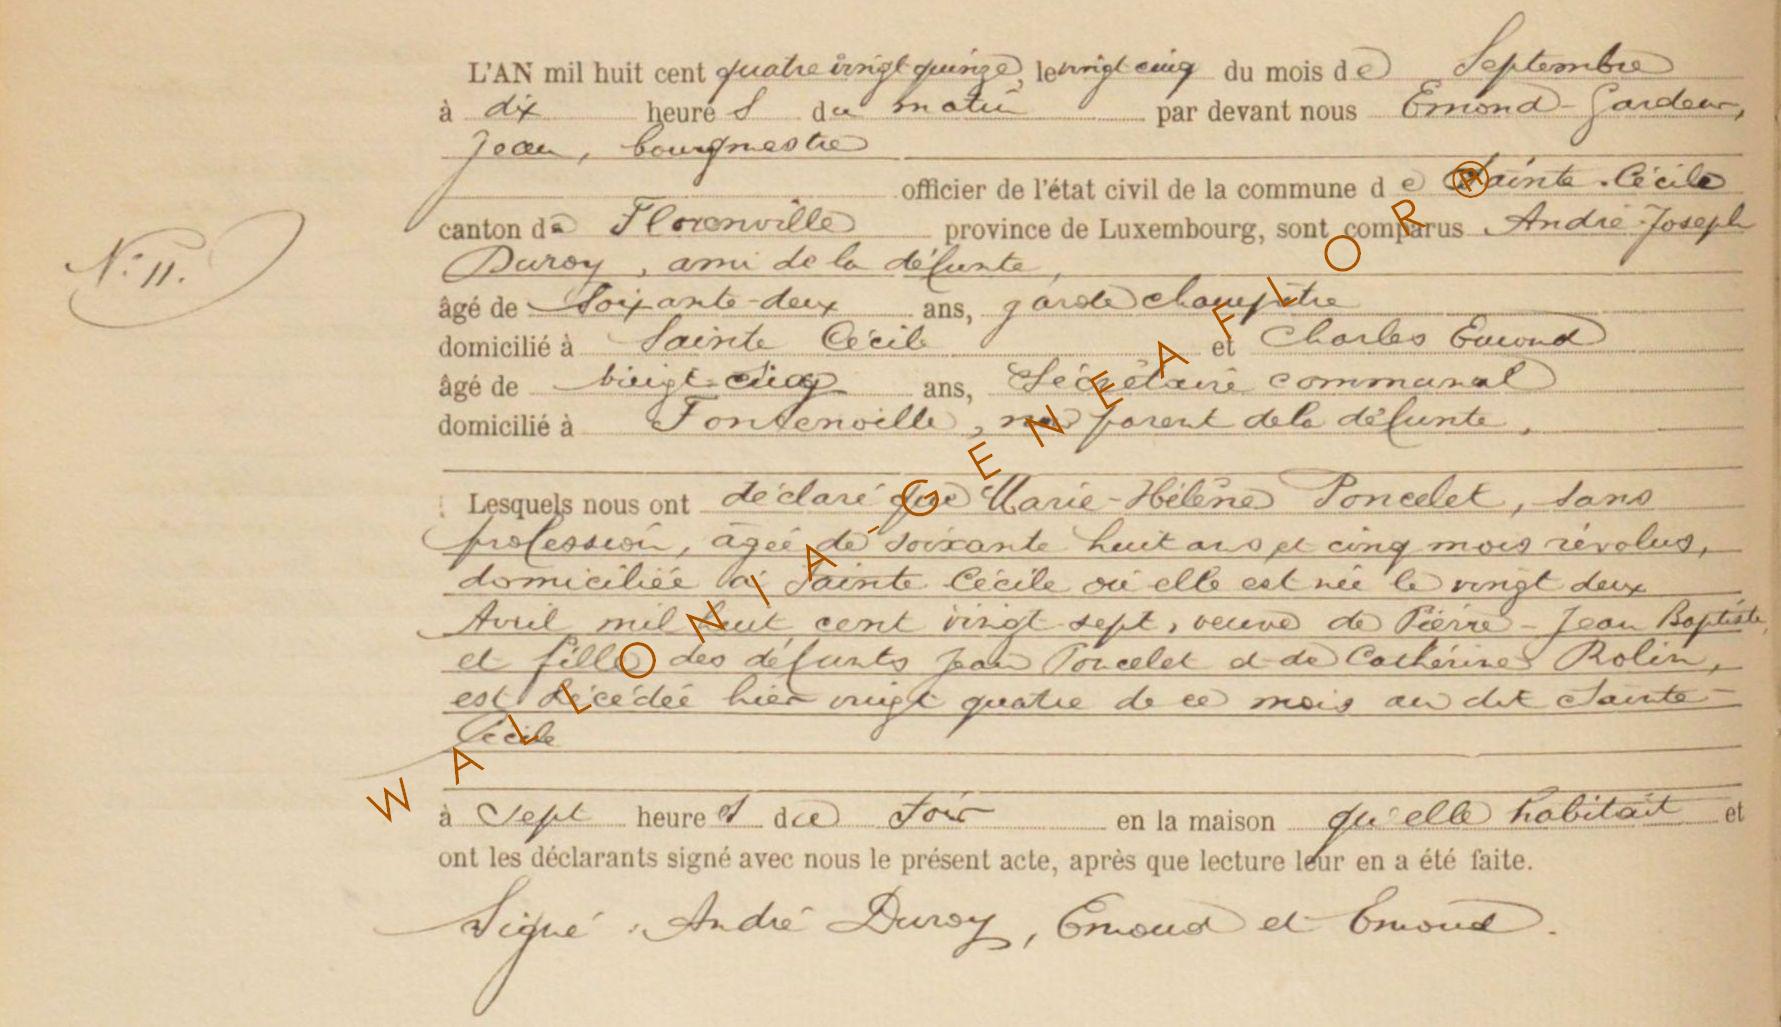 L'AN mil huit cent quatre vingt quinze, le vingt cinq du mois de Septembre
à dix heures du matin par devant nous Emond-Gardeur,
Jean, bourgmestre
officier de l'état civil de la commune de Sainte-Cécile
canton de Florenville province de Luxembourg, sont comparus André-Joseph
Duroy, ami de la défunte,
âgé de Soixante-deux ans, garde champêtre
domicilié à Sainte Cécile et Charles Emond
âgé de vingt-cinq ans, Sécrétaire communal
domicilié à Fontenoille, non parent de la défunte,
Lesquels nous ont déclaré que Marie-Hélène Poncelet, sans
profession, âgée de soixante huit ans et cinq mois révolus,
domiciliée à Sainte Cécile où elle est née le vingt deux
Avril mil huit cent vingt sept, veuve de Pierre-Jean Baptiste,
et fille des défunts Jean Poncelet et de Cathérine Rolin,
est décédée hier vingt quatre de ce mois au dit Sainte-
Cécile
à Sept heures du soir en la maison qu'elle habitait et
ont les déclarants signé avec nous le présent acte, après que lecture leur en a été faite.
Signé: André Duroy, Emond et Emond.
N° 11.
WALLONIA-GENEAFLOR®